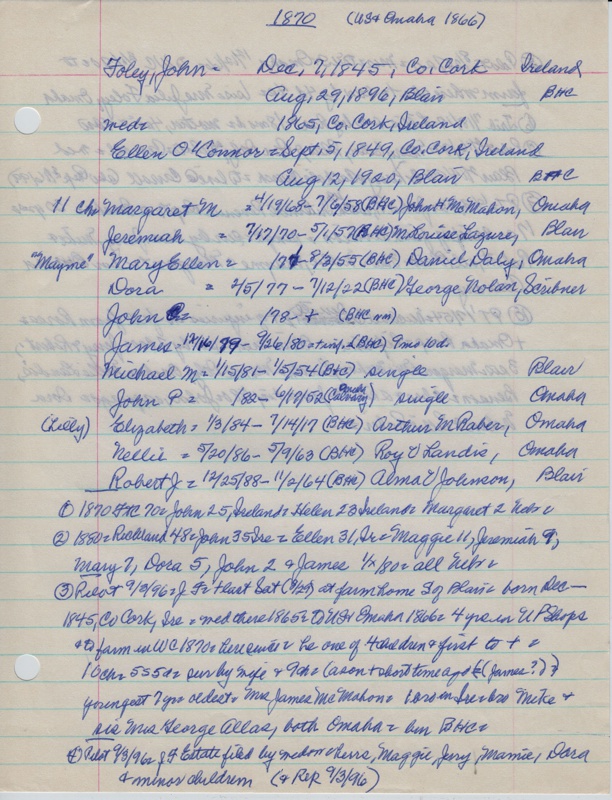 1870 (US & Omaha 1866)
Foley, John = Dec, 7, 1845, Co, Cork Ireland
Aug, 29, 1896, Blair BHC
med= 1865, Co. Cork, Ireland
Ellen O'Connor = Sept. 5, 1849, Co. Cork, Ireland
Aug 12, 1920, Blair BHC
11 ch= Margaret M = 4/19/68 - 7/6/58 (BHC) John H McMahon, Omaha
Jeremiah = 7/17/70 - 5/1/57 (BHC) M Louise Lazure, Blair
"Mayme" Mary Ellen = /7 - 8/3/55 (BHC) Daniel Daly, Omaha
Dora = 2/5/77 - 7/12/22 (BHC) George Nolan, Scribner
John C = /78 - + (BHC nm)
James = 12/16/79 - 9/26/80 = (BHC) 9 mo 10 d
Michael M = 1/15/81 - 1/5/54 (BHC) single Blair
John P = /82 - 6/17/52 (Omaha Calvary) single Omaha
(Lilly) Elizabeth = 1/3/84 - 7/14/17 (BHC) Arthur M Raber, Omaha
Nellie = 5/20/86 - 5/9/63 (BHC) Roy V Landis, Omaha
Robert J = 12/25/88 - 11/2/64 (BHC) Alma V Johnson, Blair
① 1870 70 = John 25, Ireland = Helen 23 Ireland = Margaret 2 Neb =
② 1880 = Richland 48 = John 35 Ire = Ellen 31, Ir = Maggie 11, Jeremiah 9,
Mary 7, Dora 5, John 2 & James /80 = all Neb =
③ Pilot 9/3/96 = J F = + last Sat (8/29) at farm home S of Blair = born Dec -
1845, Co Cork, Ire = med there 1865 = to US & Omaha 1866 = 4 yrs in UP Shops
& to farm in WC 1870 = here since = he one of 4 children & first to + =
10 ch = 5 5 = sur by wife & 9 ch = (a son + short time ago (James?))
youngest 7 yrs = oldest = Mrs James McMahon = bro in Ire = bro Mike &
sis Mrs George Allas, both Omaha = bur BHC =
④ Pilot 9/3/96 = J F Estate filed by widow & heirs, Maggie, Jerry, Mamie, Dora
& minor children (& Rep 9/3/96)